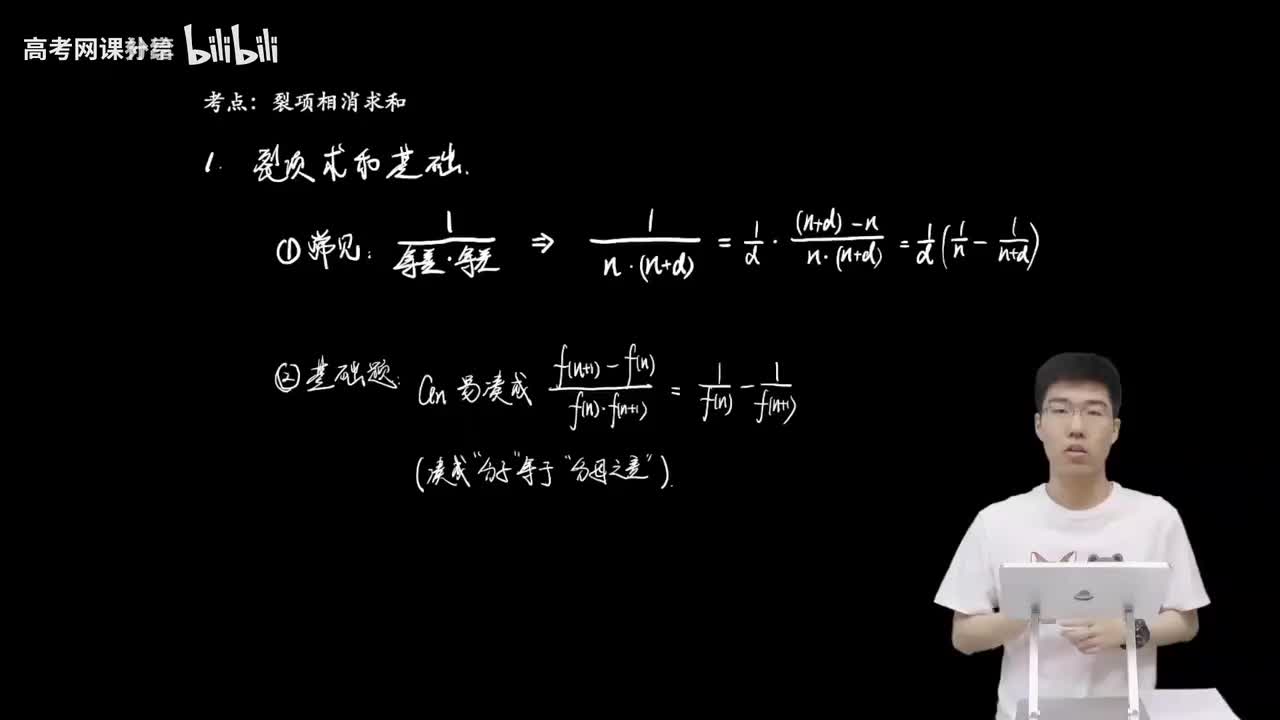 高考网课补给 bilibili
考点：裂项相消求和
1. 裂项求和基础.
① 常见： 1/(等差·等差) ⇒ 1/(n·(n+d)) = 1/d · ((n+d)-n)/(n·(n+d)) = 1/d(1/n - 1/(n+d))
② 基础题： an 易凑成 (f(n+1)-f(n))/(f(n)·f(n+1)) = 1/f(n) - 1/f(n+1)
(凑成"分子"等于"分母之差").